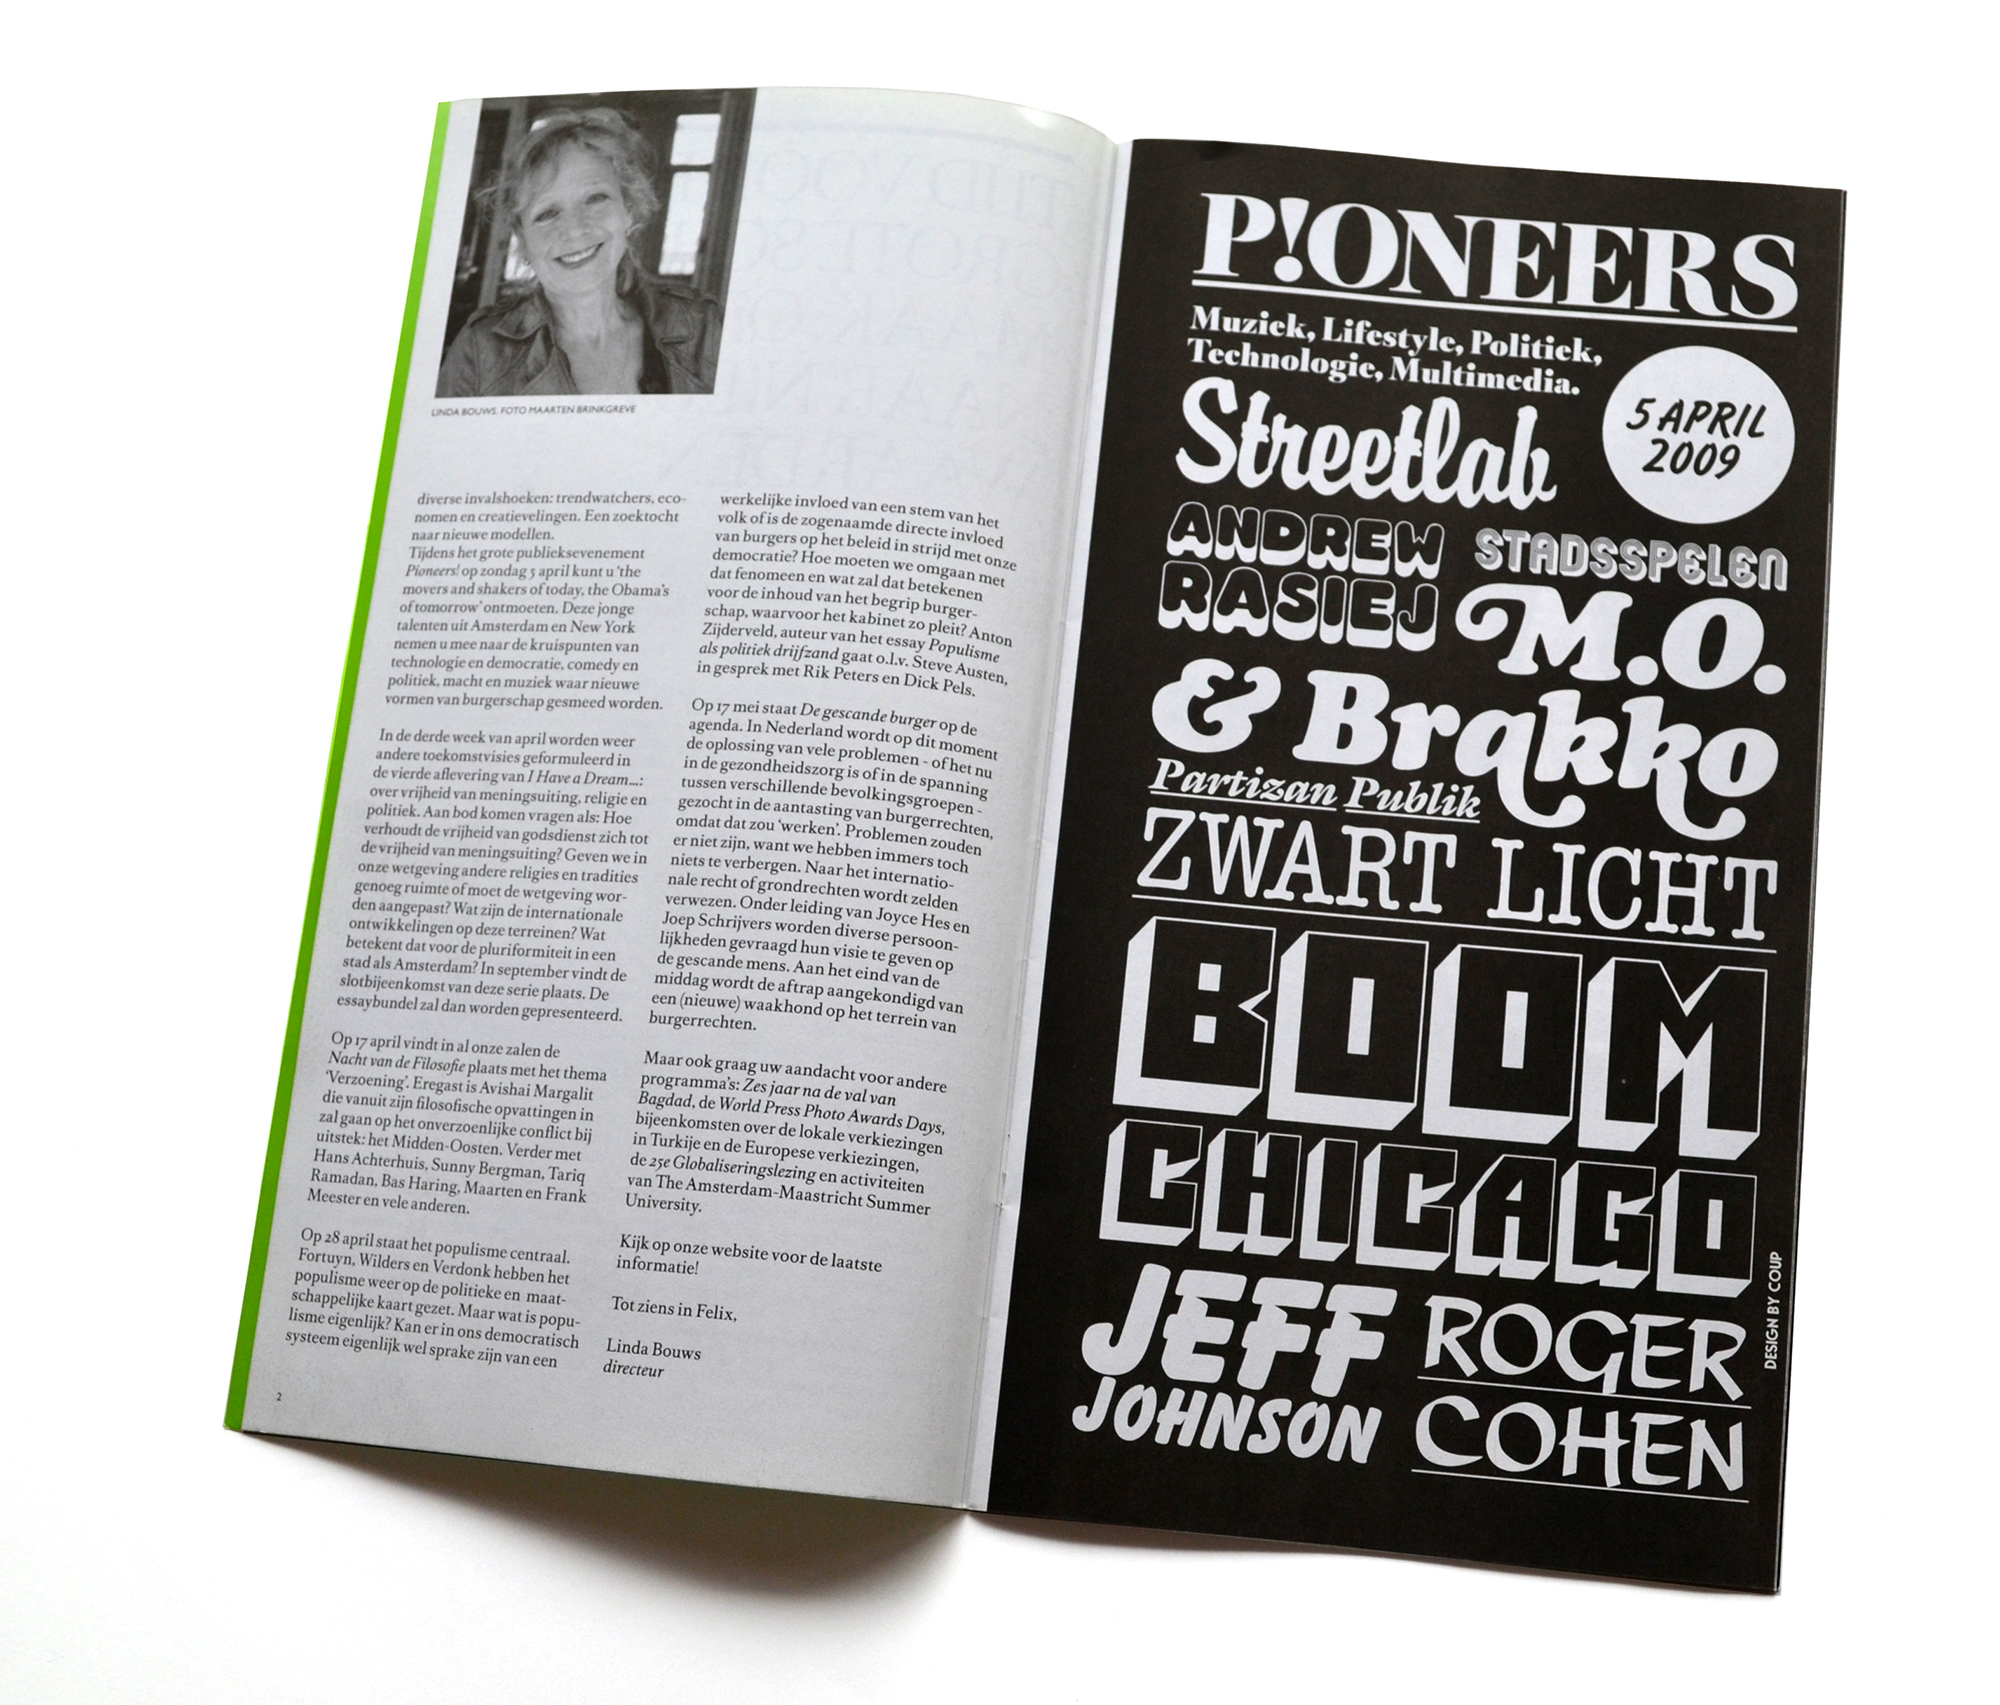 LINDA BOUWS. FOTO MAARTEN BRINKGREVE
diverse invalshoeken: trendwatchers, eco-
nomen en creatievelingen. Een zoektocht
naar nieuwe modellen.
Tijdens het grote publieksevenement
Pioneers! op zondag 5 april kunt u ‘the
movers and shakers of today, the Obama’s
of tomorrow’ ontmoeten. Deze jonge
talenten uit Amsterdam en New York
nemen u mee naar de kruispunten van
technologie en democratie, comedy en
politiek, macht en muziek waar nieuwe
vormen van burgerschap gesmeed worden.
In de derde week van april worden weer
andere toekomstvisies geformuleerd in
de vierde aflevering van I Have a Dream...:
over vrijheid van meningsuiting, religie en
politiek. Aan bod komen vragen als: Hoe
verhoudt de vrijheid van godsdienst zich tot
de vrijheid van meningsuiting? Geven we in
onze wetgeving andere religies en tradities
genoeg ruimte of moet de wetgeving wor-
den aangepast? Wat zijn de internationale
ontwikkelingen op deze terreinen? Wat
betekent dat voor de pluriformiteit in een
stad als Amsterdam? In september vindt de
slotbijeenkomst van deze serie plaats. De
essaybundel zal dan worden gepresenteerd.
Op 17 april vindt in al onze zalen de
Nacht van de Filosofie plaats met het thema
‘Verzoening’. Eregast is Avishai Margalit
die vanuit zijn filosofische opvattingen in
zal gaan op het onverzoenlijke conflict bij
uitstek: het Midden-Oosten. Verder met
Hans Achterhuis, Sunny Bergman, Tariq
Ramadan, Bas Haring, Maarten en Frank
Meester en vele anderen.
Op 28 april staat het populisme centraal.
Fortuyn, Wilders en Verdonk hebben het
populisme weer op de politieke en maat-
schappelijke kaart gezet. Maar wat is popu-
lisme eigenlijk? Kan er in ons democratisch
systeem eigenlijk wel sprake zijn van een
2
werkelijke invloed van een stem van het
volk of is de zogenaamde directe invloed
van burgers op het beleid in strijd met onze
democratie? Hoe moeten we omgaan met
dat fenomeen en wat zal dat betekenen
voor de inhoud van het begrip burger-
schap, waarvoor het kabinet zo pleit? Anton
Zijderveld, auteur van het essay Populisme
als politiek drijfzand gaat o.l.v. Steve Austen,
in gesprek met Rik Peters en Dick Pels.
Op 17 mei staat De gescande burger op de
agenda. In Nederland wordt op dit moment
de oplossing van vele problemen - of het nu
in de gezondheidszorg is of in de spanning
tussen verschillende bevolkingsgroepen -
gezocht in de aantasting van burgerrechten,
omdat dat zou ‘werken’. Problemen zouden
er niet zijn, want we hebben immers toch
niets te verbergen. Naar het internatio-
nale recht of grondrechten wordt zelden
verwezen. Onder leiding van Joyce Hes en
Joep Schrijvers worden diverse persoon-
lijkheden gevraagd hun visie te geven op
de gescande mens. Aan het eind van de
middag wordt de aftrap aangekondigd van
een (nieuwe) waakhond op het terrein van
burgerrechten.
Maar ook graag uw aandacht voor andere
programma’s: Zes jaar na de val van
Bagdad, de World Press Photo Awards Days,
bijeenkomsten over de lokale verkiezingen
in Turkije en de Europese verkiezingen,
de 25e Globaliseringslezing en activiteiten
van The Amsterdam-Maastricht Summer
University.
Kijk op onze website voor de laatste
informatie!
Tot ziens in Felix,
Linda Bouws
directeur
P!ONEERS
Muziek, Lifestyle, Politiek,
Technologie, Multimedia.
5 APRIL
2009
Streetlab
ANDREW
RASIEJ
STADSSPELEN
M.O.
& Brakko
Partizan Publik
ZWART LICHT
BOOM
CHICAGO
JEFF
JOHNSON
ROGER
COHEN
DESIGN BY COUP